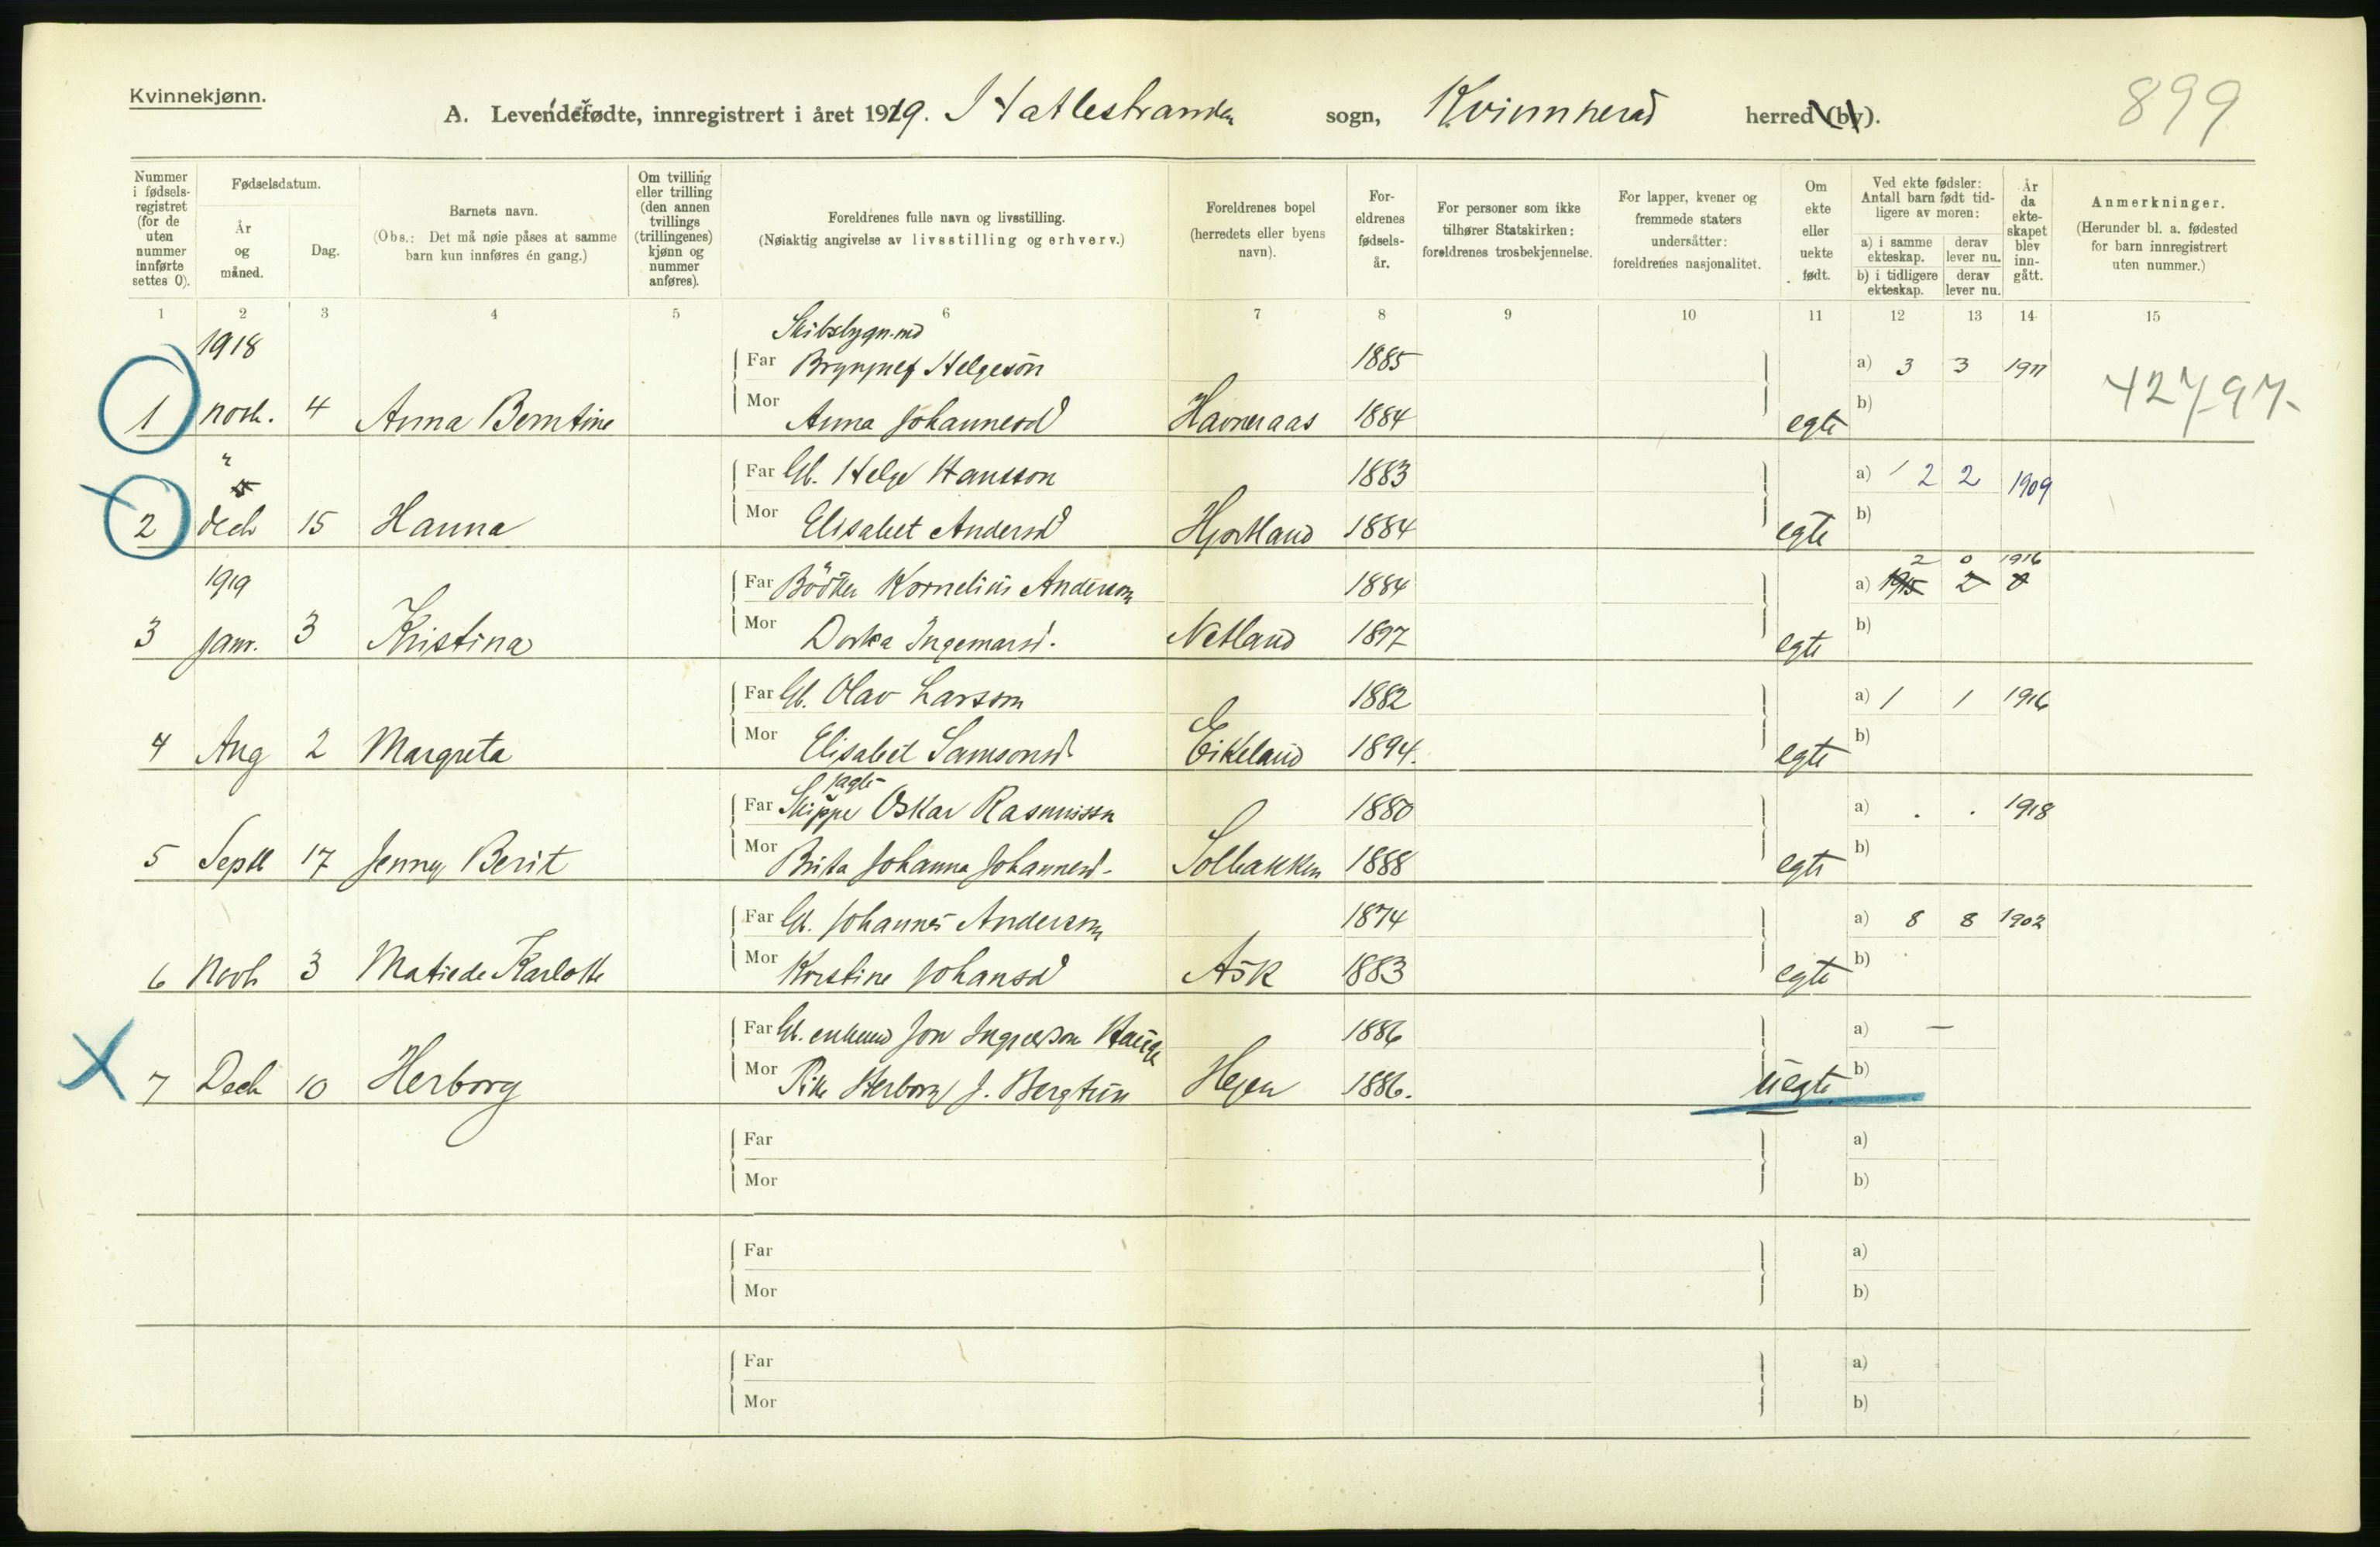 Kvinnekjønn.
A. Levendefødte, innregistrert i året 1919. Hatlestranden sogn, Kvinnherad herred (by).
899
Nummer i fødselsregistret (for de uten nummer innførte settes 0).
Fødselsdatum.
År og måned.
Dag.
Barnets navn.
(Obs.: Det må nøie påses at samme barn kun innføres én gang.)
Om tvilling eller trilling (den annen tvillings (trillingenes) kjønn og nummer anføres).
Foreldrenes fulle navn og livsstilling.
(Nøiaktig angivelse av livsstilling og erhverv.)
Foreldrenes bopel (herredets eller byens navn).
Foreldrenes fødselsår.
For personer som ikke tilhører Statskirken: foreldrenes trosbekjennelse.
For lapper, kvener og fremmede staters undersåtter: foreldrenes nasjonalitet.
Om ekte eller uekte født.
Ved ekte fødsler: Antall barn født tidligere av moren:
a) i samme ekteskap.
derav lever nu.
b) i tidligere ekteskap.
derav lever nu.
År da ekteskapet blev inngått.
Anmerkninger.
(Herunder bl. a. fødested for barn innregistrert uten nummer.)
1 2 3 4 5 6 7 8 9 10 11 12 13 14 15
1918 Skibsbygn.md
Far Brynjulf Helgeson 1885 a) 3 3 1911
42797-
1 novb. 4 Anna Berntine Mor Anna Johannesd Havneraas 1884 egte b)
" Far Gb. Helge Hansson 1883 a) 2 2 1909
2 decb 15 Hanna Mor Elisabet Andersd Hjortland 1884 egte b)
2 0 1916
1919 Far Bödker Kornelius Anderson 1884 a) 1915 2 0
3 Janr. 3 Kristina Mor Dorka Ingemarsd. Netland 1897 egte b)
Far Gb. Olav Larsson 1882 a) 1 1 1916
4 Aug 2 Margreta Mor Elisabet Samsonsd Eikeland 1894. egte b)
jagte
Far Skipper Oskar Rasmussen 1880 a) . . 1918
5 Septb 17 Jenny Berit Mor Brita Johanna Johannesd- Solbakken 1888 egte b)
Far Gb. Johannes Anderson 1874 a) 8 8 1902
6 Novb 3 Matilde Karlotte Mor Kristine Johansd Ask 1883 egte b)
Far Gb. enkemd Jon Ingvarson Hauge 1886 a) —
X 7 Decb 10 Herborg Mor Pike Herborg J. Bergtun Hegen 1886. uegte b)
Far a)
Mor b)
Far a)
Mor b)
Far a)
Mor b)